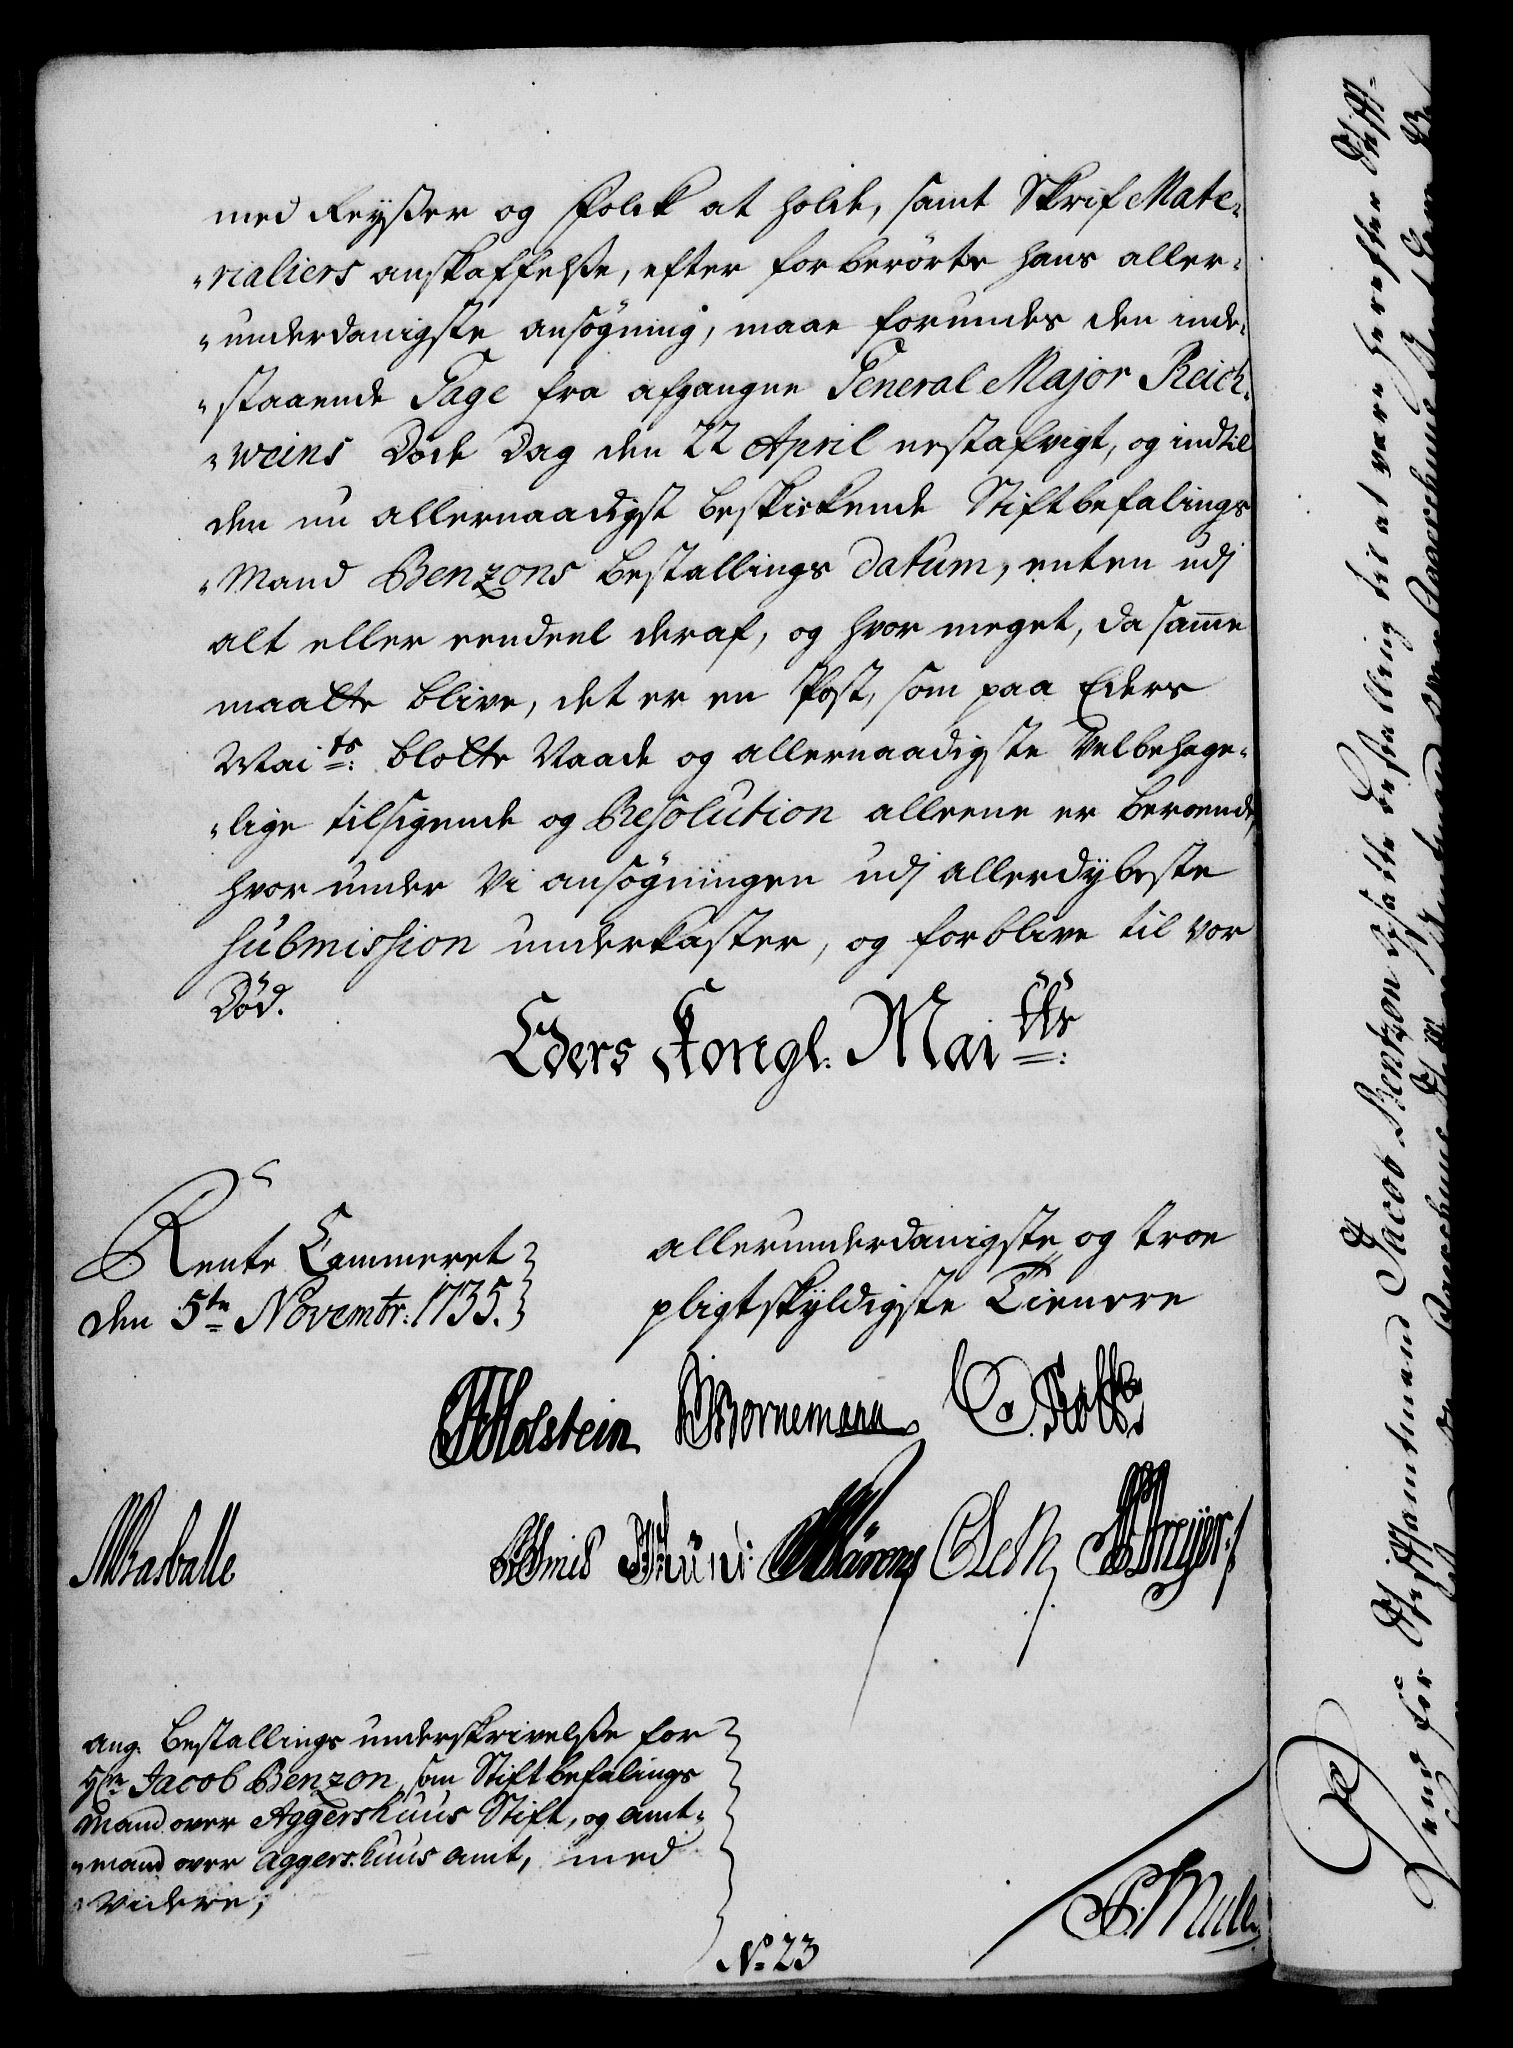 med Reyßer og Folck at holde, samt Skrif Mate-
-rialiers anskaffelße, efter forberörte hans aller-
-underdanigste ansögning, maae forundes den inde-
-staaende Gage fra afgangne General Major Reich-
-weins Döde Dag den 22 April nestafvigt, og indtil
den nu allernaadigst beskickende Stiftbefalings
-Mand Benzons bestallings Datum, enten udj
alt eller eendeel deraf, og hvor meget, da samme
maatte blive, det er en Post, som paa Eders
Mai.ts: blotte Naade og allernaadigste Velbehage-
-lige tilsigende og Resolution alleene er beroende,
hvorunder Vi ansögningen udj allerdybeste
submission underkaster, og forblive til vor
Död.
Eders Kongl: Mai.tts:
Rente Cammeret
den 5te Novembr: 1735.
allerunderdanigste og troe
pligtskyldigste Tienere
Holstein Bornemann
Basballe
ang. bestallings underskrivelße for
Hr. Jacob Benzon, som Stiftbefalings
Mand over Aggershuus Stift, og Amt-
-mand over Aggershuus Amt, med
-videre,
No 23
Müller
Udj for Stiftamtmand Jacob Bentzon Udsatte Bestalling til at være herefter Stiff-